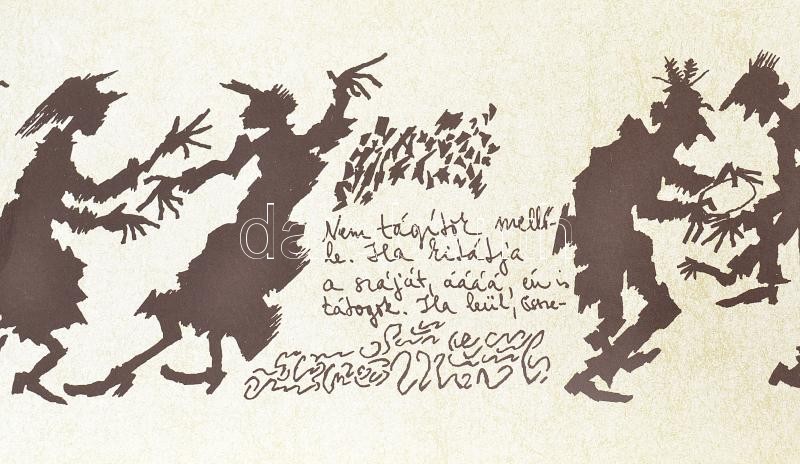 Nem tágítok mellő-
le. Ha kitátja
a száját, áááá, én is
tátogok. Ha leül, össze-